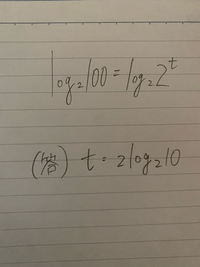 log₂100 = log₂2ᵗ
(答) t = 2log₂10